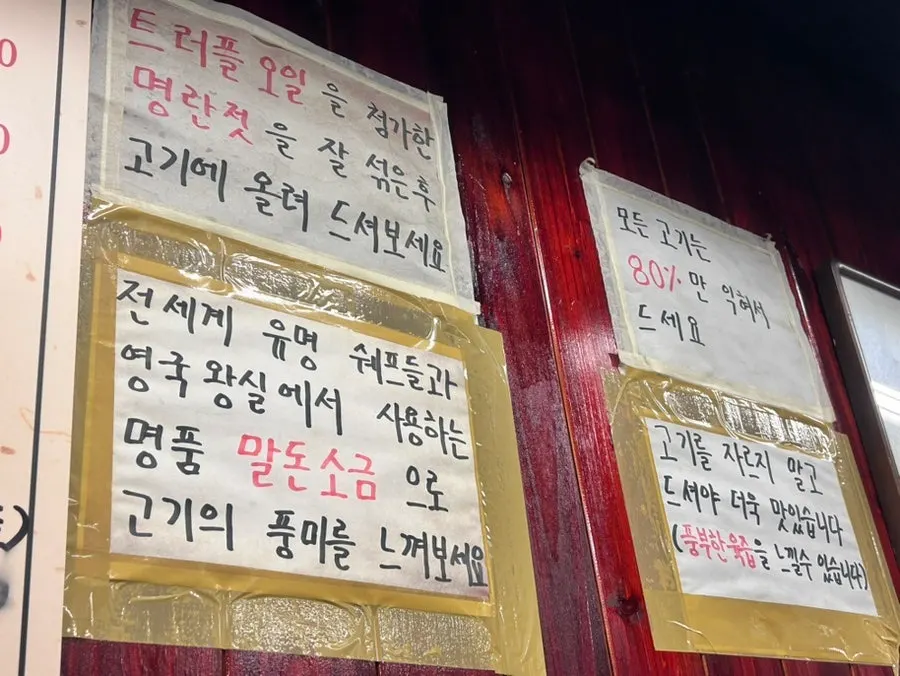 트러플 오일을 첨가한
명란젓을 잘 섞은후
고기에 올려 드셔보세요
전세계 유명 쉐프들과
영국왕실에서 사용하는
명품 말돈소금으로
고기의 풍미를 느껴보세요
모든 고기는
80%만 익혀서
드세요
고기를 자르지 말고
드셔야 더욱 맛있습니다
(풍부한육즙을 느낄수 있습니다)